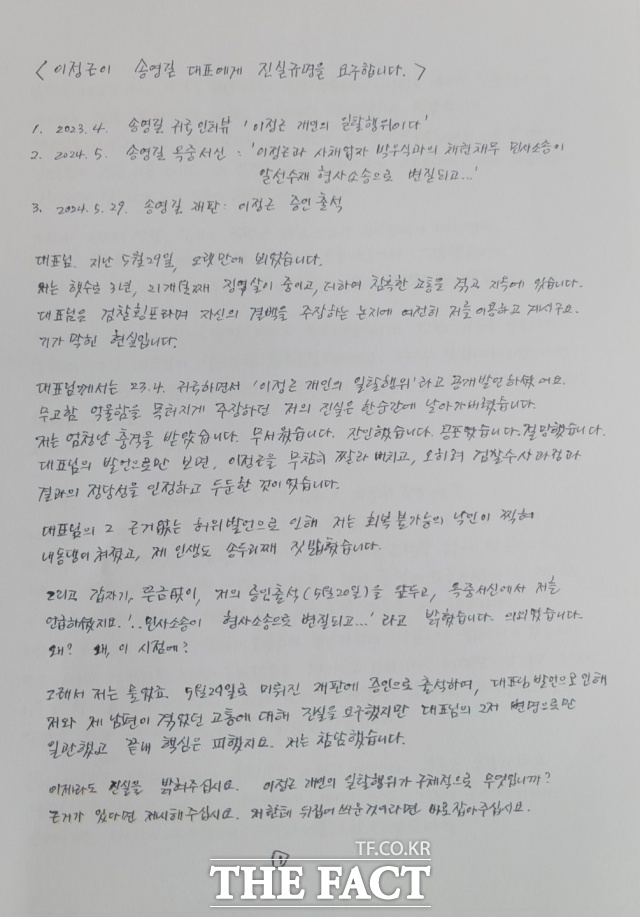 < 이정근이 송영길 대표에게 진실규명을 요구합니다. >
1. 2023.4. 송영길 귀국 인터뷰 '이정근 개인의 일탈행위이다'
2. 2024.5. 송영길 옥중서신 : '이정근과 사채업자 박우식과의 채권채무 민사소송이
알선수재 형사소송으로 변질되고...'
3. 2024.5.29. 송영길 재판 : 이정근 증인 출석
대표님. 지난 5월29일, 오랫만에 뵈었습니다.
저는 햇수로 3년, 21개월째 징역살이 중이고, 더하여 참혹한 고통을 겪고 지옥에 있습니다.
대표님은 검찰횡포라며 자신의 결백을 주장하는 논지에 여전히 저를 이용하고 계시구요.
기가 막힌 현실입니다.
대표님께서는 23.4. 귀국하면서 '이정근 개인의 일탈행위'라고 공개발언하셨어요.
무고함 억울함을 목터지게 주장하던 저의 진실은 한순간에 날아가버렸습니다.
저는 엄청난 충격을 받았습니다. 무서웠습니다. 잔인했습니다. 공포였습니다. 절망했습니다.
대표님의 발언으로만 보면, 이정근을 무참히 짤라 버리고, 오히려 검찰수사과정과
결과의 정당성을 인정하고 두둔한 것이었습니다.
대표님의 그 근거없는 허위발언으로 인해 저는 회복불가능의 낙인이 찍혀
내동댕이 쳐졌고, 제 인생도 송두리째 짓밟혔습니다.
그리고 갑자기, 뜬금없이, 저의 증인출석(5월20일)을 앞두고, 옥중서신에서 저를
언급하셨지요. '..민사소송이 형사소송으로 변질되고...' 라고 밝혔습니다. 의외였습니다.
왜? 왜, 이 시점에?
그래서 저는 물었죠. 5월29일로 미뤄진 재판에 증인으로 출석하여, 대표님 발언으로 인해
저와 제 남편이 겪었던 고통에 대해 진실을 요구했지만 대표님의 그저 변명으로만
일관했고 끝내 핵심은 피했지요. 저는 참담했습니다.
이제라도 진실을 밝혀주십시요. 이정근 개인의 일탈행위가 구체적으로 무엇입니까?
근거가 있다면 제시해주십시요. 저한테 뒤집어 씌운것이라면 바로잡아주십시요.
1
TF.CO.KR
THE FACT